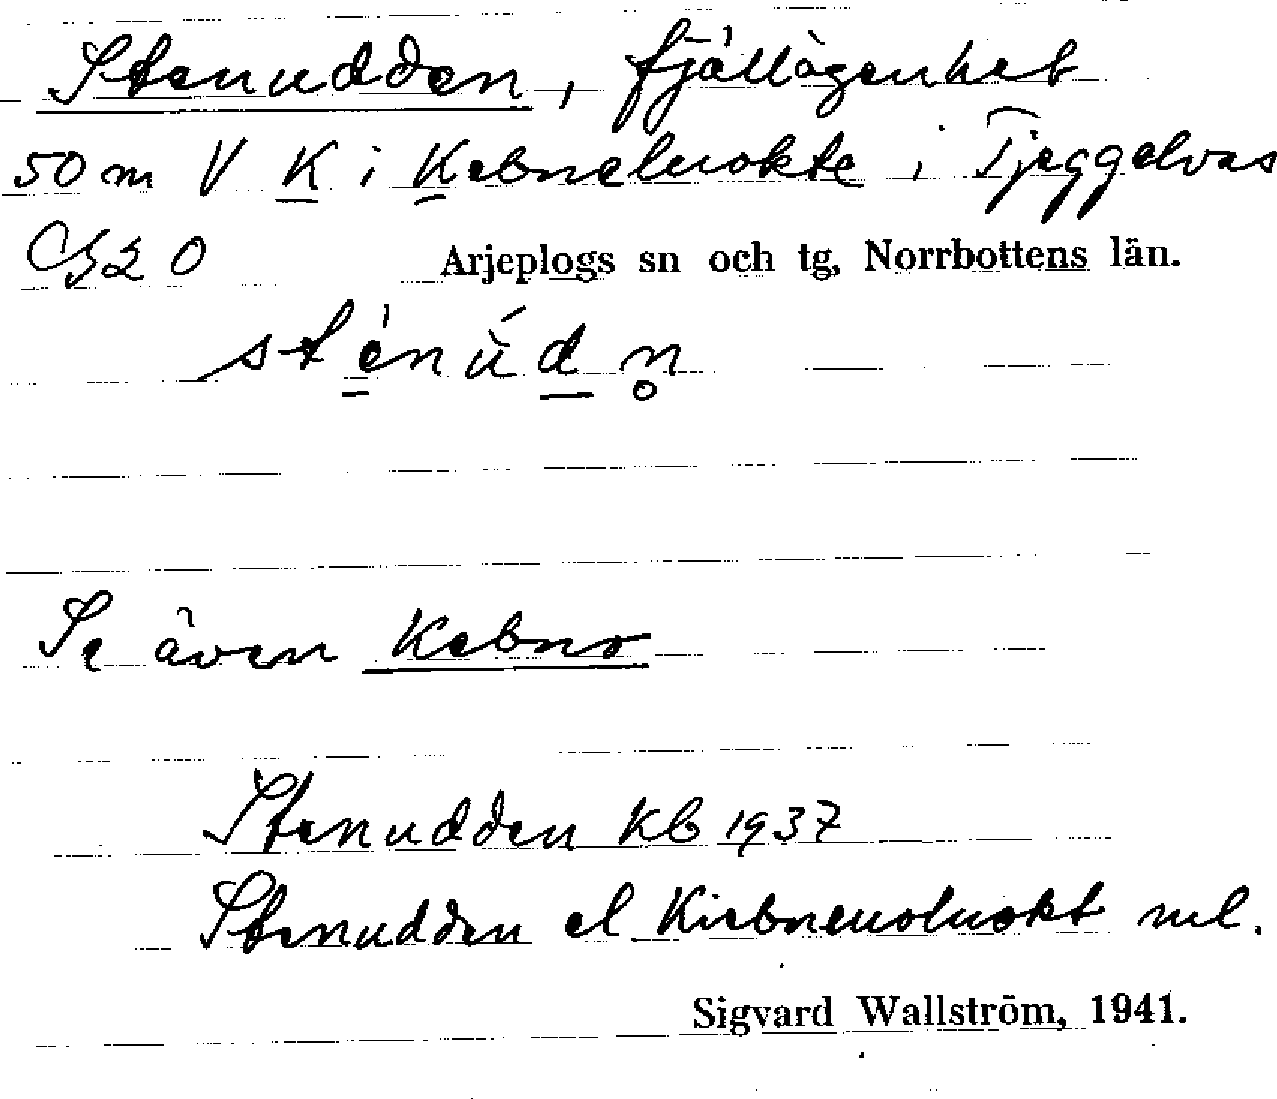 Stenudden, fjällägenhet
50 m V K i Kebneluokte i Tjeggelvas
Arjeplogs sn och tg, Norrbottens län.
sténúdn̥
Se även Kebno
Stenudden kb 1937
Stenudden el Kiebneuoluokt ml.
Sigvard Wallström, 1941.